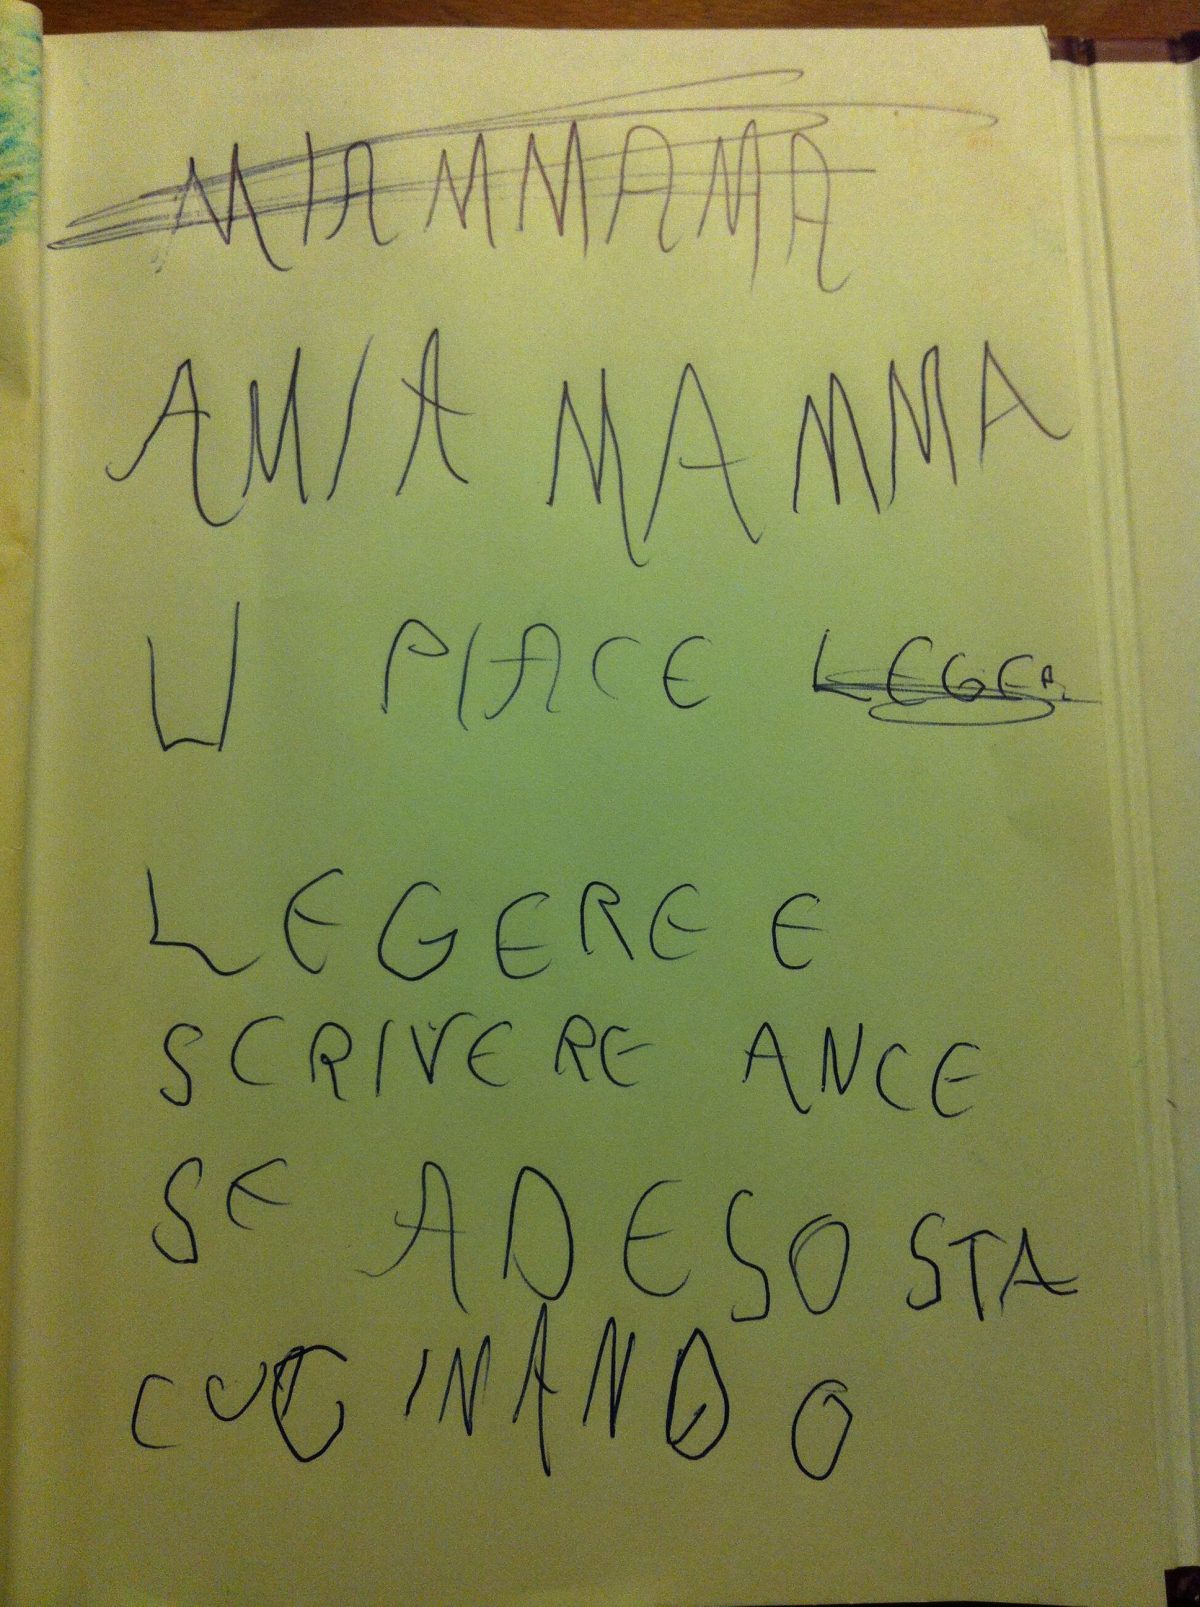 MIA MMAMA
A MIA MAMMA
LI PIACE LEGER
LEGERE E
SCRIVERE ANCE
SE ADESO STA
CUCINANDO